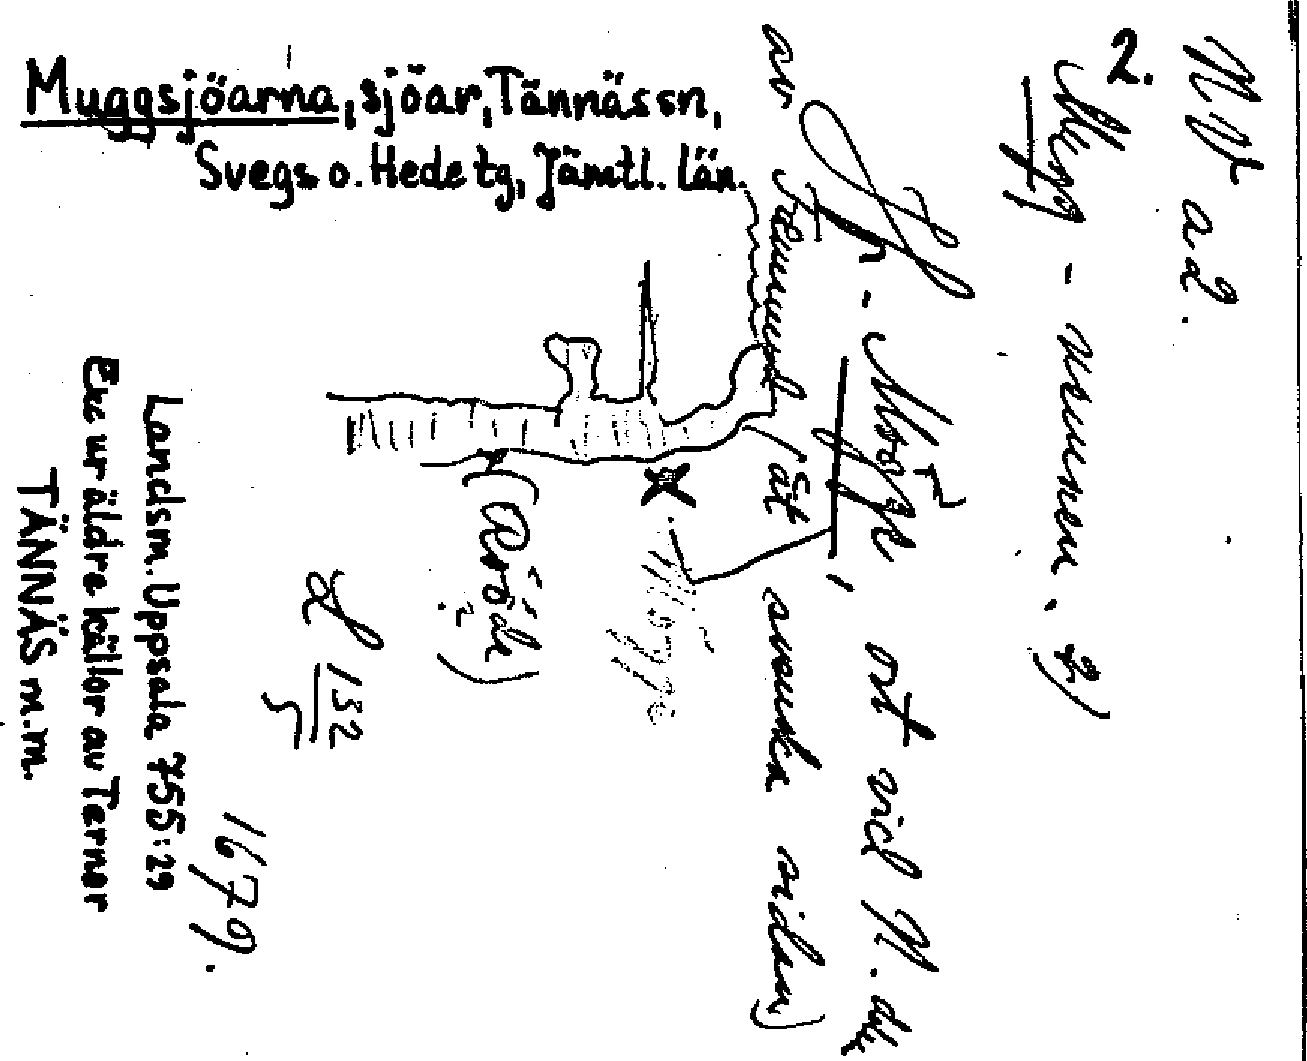 Muggsjöarna, sjöar, Tännäs sn,
Svegs o. Hede tg, Jämtl. län.
2.
Mugg - 
- Mögge, ort vid N. 
av Fæmund (åt svenska sidan)
Mögge
(Röde)
132
5
1679.
Landsm. Uppsala 755:29
Exc ur äldre källor av Terner
TÄNNÄS m.m.